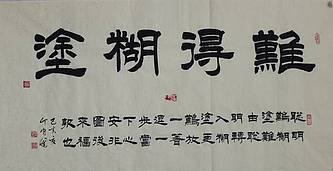 難得糊塗
聰明
難糊
塗難
由聰
明轉
入糊
塗更
難放
一著
退一
步當
下心
安非
圖後
來福
報也